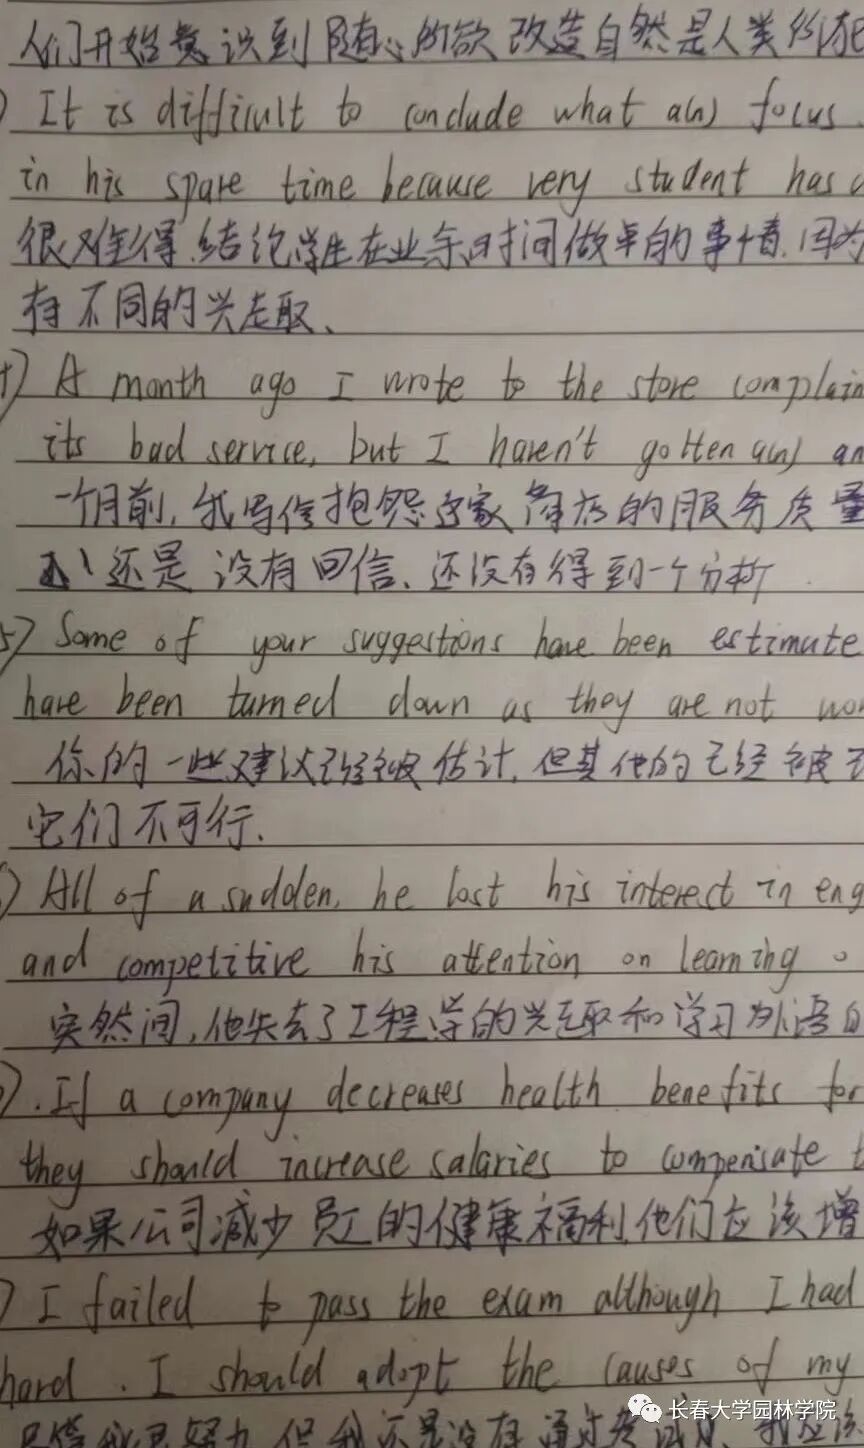 人们开始意识到随心所欲改造自然是人类的
) It is difficult to conclude what a(n) focus
in his spare time because very student has
很难得结论学生在业余时间做早的事情.因为
有不同的兴趣、
) A month ago I wrote to the store complain
its bad service, but I haven't gotten a(n) an
一个月前,我写信抱怨这家商店的服务质量
还是没有回信、还没有得到一个分析
5) Some of your suggestions have been estimate
have been turned down as they are not wor
你的一些建议已经被估计,但其他的已经被
它们不可行.
) All of a sudden, he lost his interest in eng
and competitive his attention on learning o
突然间,他失去了工程学的兴趣和学习外语
). If a company decreases health benefits for
they should increase salaries to compensate t
如果公司减少员工的健康福利,他们应该增
) I failed to pass the exam although I had
hard. I should adopt the causes of my
尽管我已努力,但我还是没有通过考试,我应该
长春大学园林学院